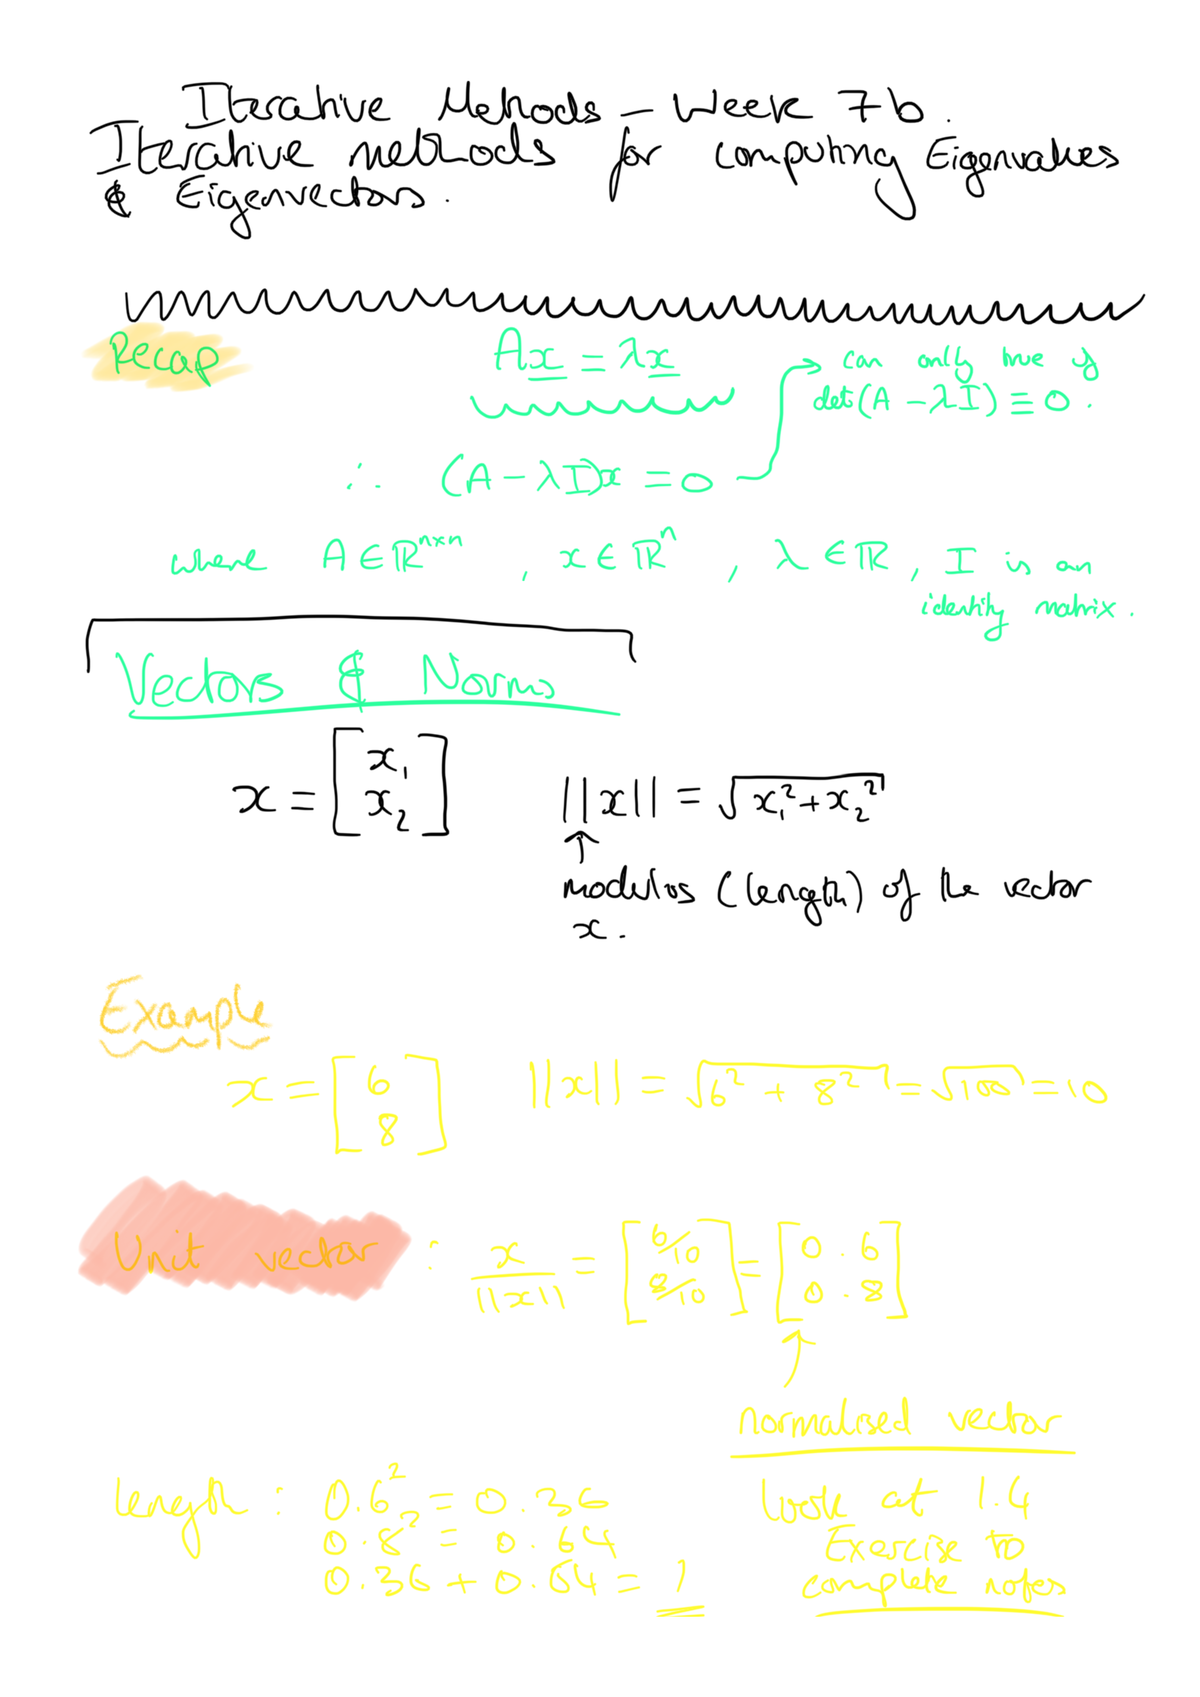 Iterative Methods – Week 7b.
Iterative methods for computing Eigenvalues
& Eigenvectors.
Recap
Ax = λx
can only true if
det(A - λI) ≡ 0.
∴ (A - λI)x = 0
where A ∈ ℝⁿˣⁿ, x ∈ ℝⁿ, λ ∈ ℝ, I is an
identity matrix.
Vectors & Norms
x = [x₁ x₂]
||x|| = √(x₁² + x₂²)
↑
modulus (length) of the vector
x.
Example
x = [6 8]
||x|| = √(6² + 8²) = √100 = 10
Unit vector : x/||x|| = [6/10 8/10] = [0.6 0.8]
↑
normalised vector
length : 0.6² = 0.36
0.8² = 0.64
0.36 + 0.64 = 1
Look at 1.4
Exercise to
complete notes